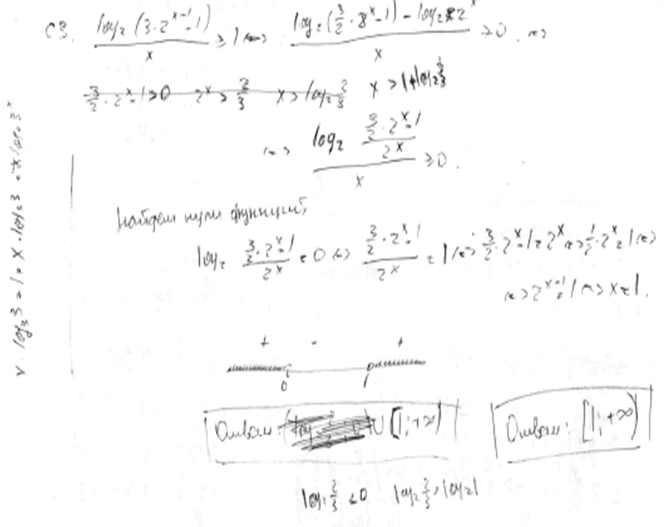 C3. log₂(3·2^(x-1) - 1)/x ≥ 1 ⇔ (log₂(3/2·2^x - 1) - log₂ 2^x)/x ≥ 0. ⇔
3/2·2^x - 1 > 0 2^x > 2/3 x > log₂ 2/3 x > 1 + log₂ 1/3
⇔ log₂ ((3/2·2^x - 1)/2^x)/x ≥ 0.
Найдем нули функции,
log₂ (3/2·2^x - 1)/2^x = 0 ⇔ (3/2·2^x - 1)/2^x = 1 ⇔ 3/2·2^x - 1 = 2^x ⇔ 1/2·2^x = 1 ⇔
⇔ 2^(x-1) = 1 ⇔ x = 1.
+ - +
0 1
Ответ: U [1; +∞)
Ответ: [1; +∞)
log₂ 2/3 < 0